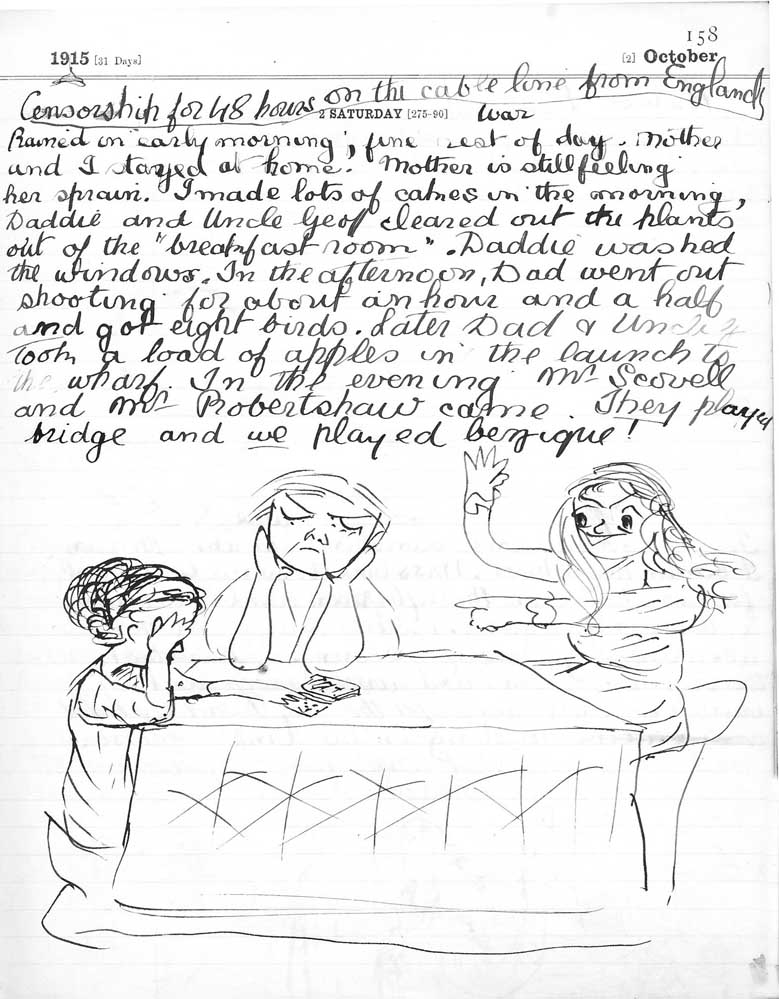 158
1915 [31 Days] [2] October
Censorship for 48 hours on the cable line from England
2 SATURDAY [275-90] war
Rained in early morning, fine rest of day. Mother
and I stayed at home. Mother is still feeling
her sprain. I made lots of cakes in the morning,
Daddie and Uncle Geof cleared out the plants
out of the "breakfast room". Daddie washed
the windows. In the afternoon, Dad went out
shooting for about an hour and a half
and got eight birds. Later Dad & Uncle
took a load of apples in the launch to
the wharf. In the evening Mr Scovell
and Mr Robertshaw came. They played
bridge and we played bezique!